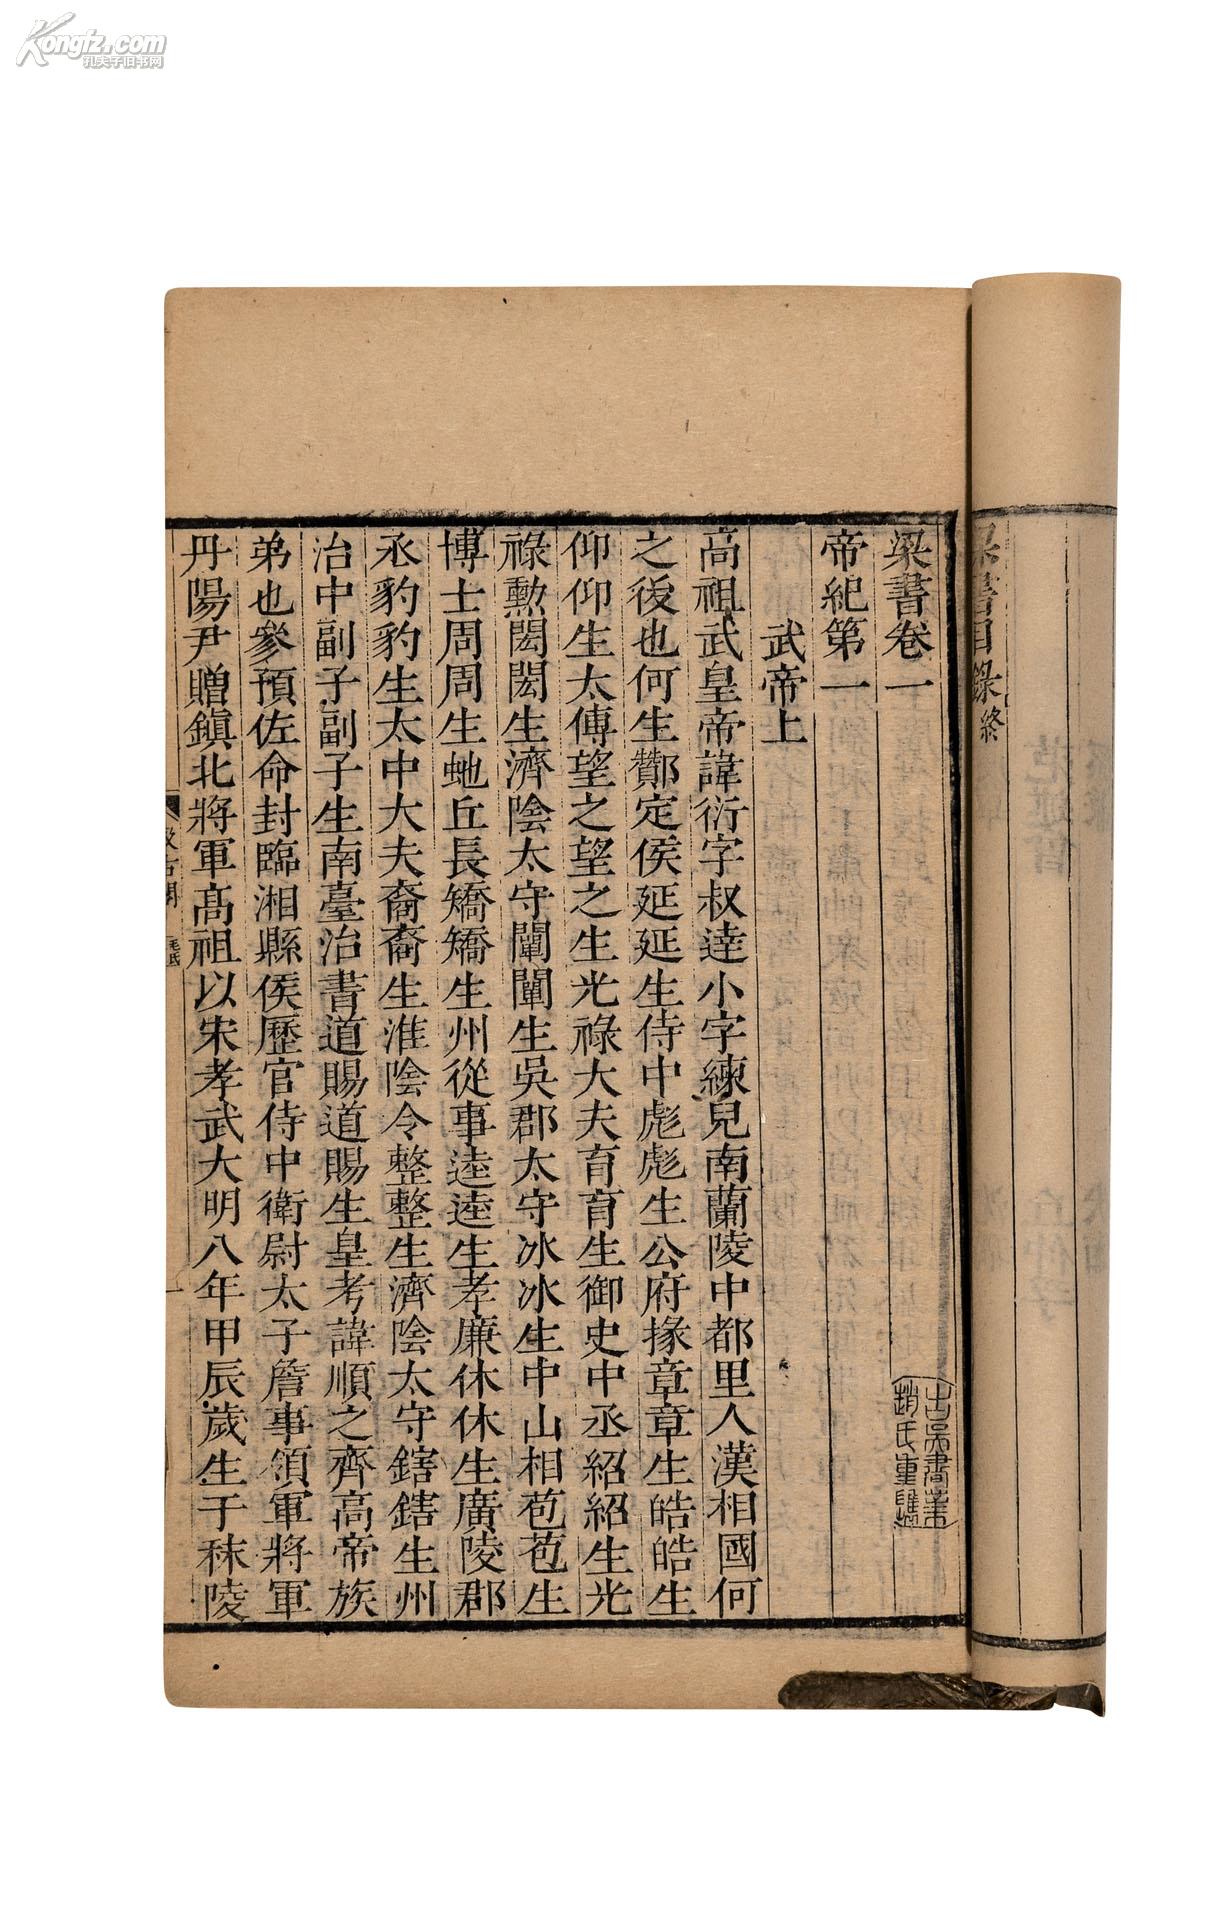 Kongfz.com
孔夫子旧书网
梁書目錄終
梁書卷一
帝紀第一
武帝上
高祖武皇帝諱衍字叔達小字練兒南蘭陵中都里人漢相國何
之後也何生酇定侯延延生侍中彪彪生公府掾章章生皓皓生
仰仰生太傅望之望之生光祿大夫育育生御史中丞紹紹生光
祿勲閎閎生濟陰太守闡闡生吳郡太守冰冰生中山相苞苞生
博士周周生虵丘長矯矯生州從事逵逵生孝廉休休生廣陵郡
丞豹豹生太中大夫裔裔生淮陰令整整生濟陰太守鎋鎋生州
治中副子副子生南臺治書道賜道賜生皇考諱順之齊高帝族
弟也參預佐命封臨湘縣侯歷官侍中衛尉太子詹事領軍將軍
丹陽尹贈鎮北將軍髙祖以宋孝武大明八年甲辰歲生于秣陵
汲古閣
毛氏
一
趙氏重